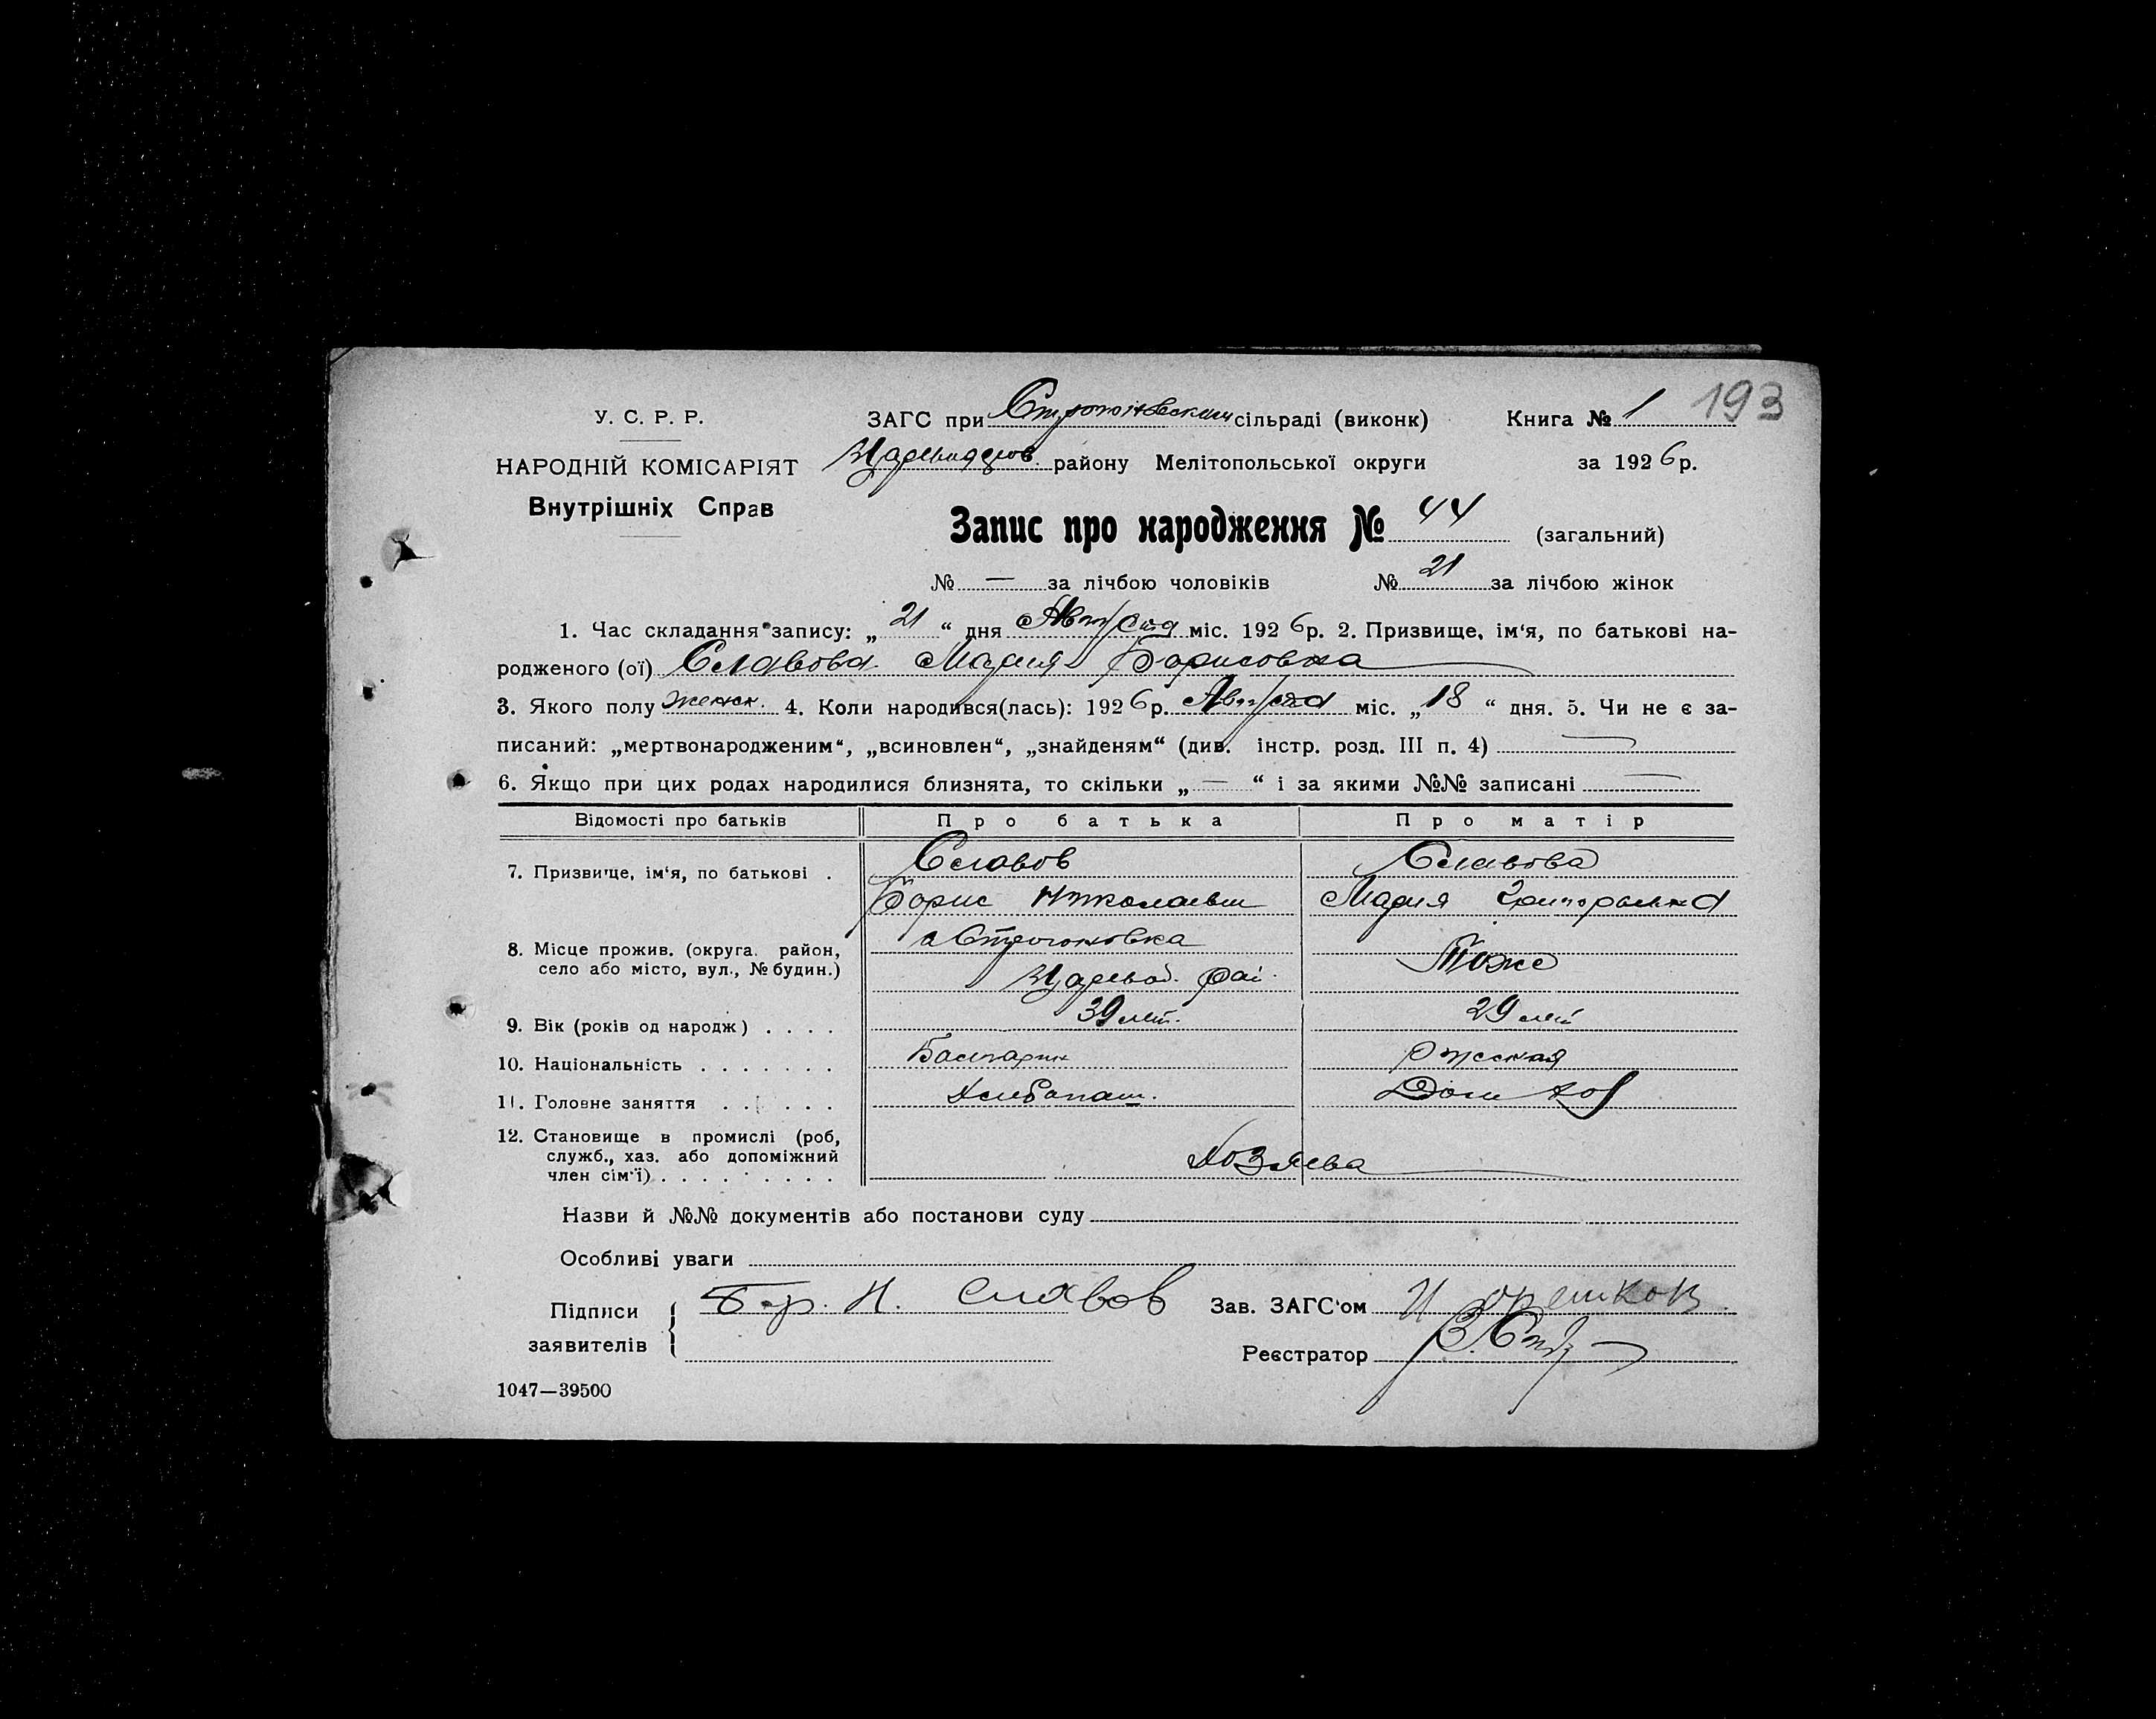 193
У. С. Р. Р. ЗАГС при Строгоновским сільраді (виконк) Книга № 1
НАРОДНІЙ КОМІСАРІЯТ району Мелітопольської округи за 1926р.
Внутрішніх Справ
Запис про народження № 44 (загальний)
№ — за лічбою чоловіків № 21 за лічбою жінок
1. Час складання запису: „ 21 “ дня Августа міс. 1926р. 2. Призвище, ім‘я, по батькові на-
родженого (ої) Славова Мария Борисовна
3. Якого полу женск. 4. Коли народився(лась): 1926р. Августа міс. „ 18 “ дня. 5. Чи не є за-
писаний: „мертвонародженим“, „всиновлен“, „знайденям“ (див. інстр. розд. III п. 4) —
6. Якщо при цих родах народилися близнята, то скільки „ — “ і за якими №№ записані —
Відомості про батьків Про батька Про матір
7. Призвище, ім‘я, по батькові . Славов Славова
Борис Николаевич Мария Григорьевна
8. Місце прожив. (округа. район, с Строгоновка Тоже
село або місто, вул., № будин.) Царевод. рай.
9. Вік (років од народж) . . . . 39 лет. 29 лет
10. Національність . . . . . . . Болгарин Русская
11. Головне заняття . . . . . . Хлебопаш. Дом хоз
12. Становище в промислі (роб,
служб., хаз. або допоміжний Хозяева
член сім‘ї) . . . . . . . . .
Назви й №№ документів або постанови суду
Особливі уваги
Підписи Бор. Н. Славов Зав. ЗАГС‘ом
заявителів Реєстратор
1047—39500